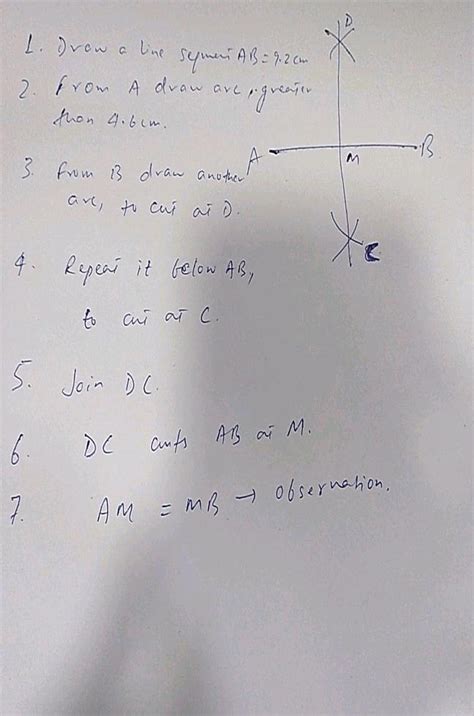 1. Draw a line segment AB = 9.2cm
2. From A draw arc, greater
than 4.6cm.
3. From B draw another
arc, to cut at D.
4. Repeat it below AB,
to cut at C.
5. Join DC.
6. DC cuts AB at M.
7. AM = MB → Observation.
D
A
M
B
C